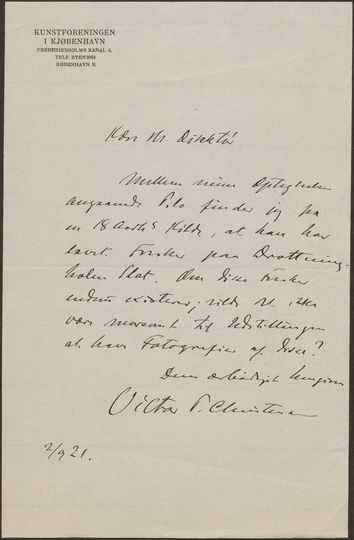 KUNSTFORENINGEN
I KJØBENHAVN
FREDERIKSHOLMS KANAL 4.
TELF. BYEN
KØBENHAVN K
Kære Hr. Direktør
Mellem mine Optegnelser
angaaende Pilo finder jeg paa
en 18 Aarh's Kilde, at han har
lavet Forsker paa Drottning-
holm Slot. Om disse
endnu existerer, vilde det ikke
være morsomt til Udstillingen
at have Fotografier af disse?
Deres ærbødigst hengivne
Victor P. Christensen
2/9 21.